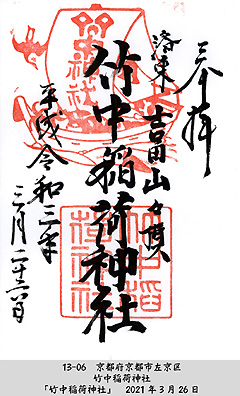 奉拝
洛東 吉田山々頂
竹中稲荷神社
平成令和三年
三月二十六日
13-06 京都府京都市左京区
竹中稲荷神社
「竹中稲荷神社」 2021年3月26日